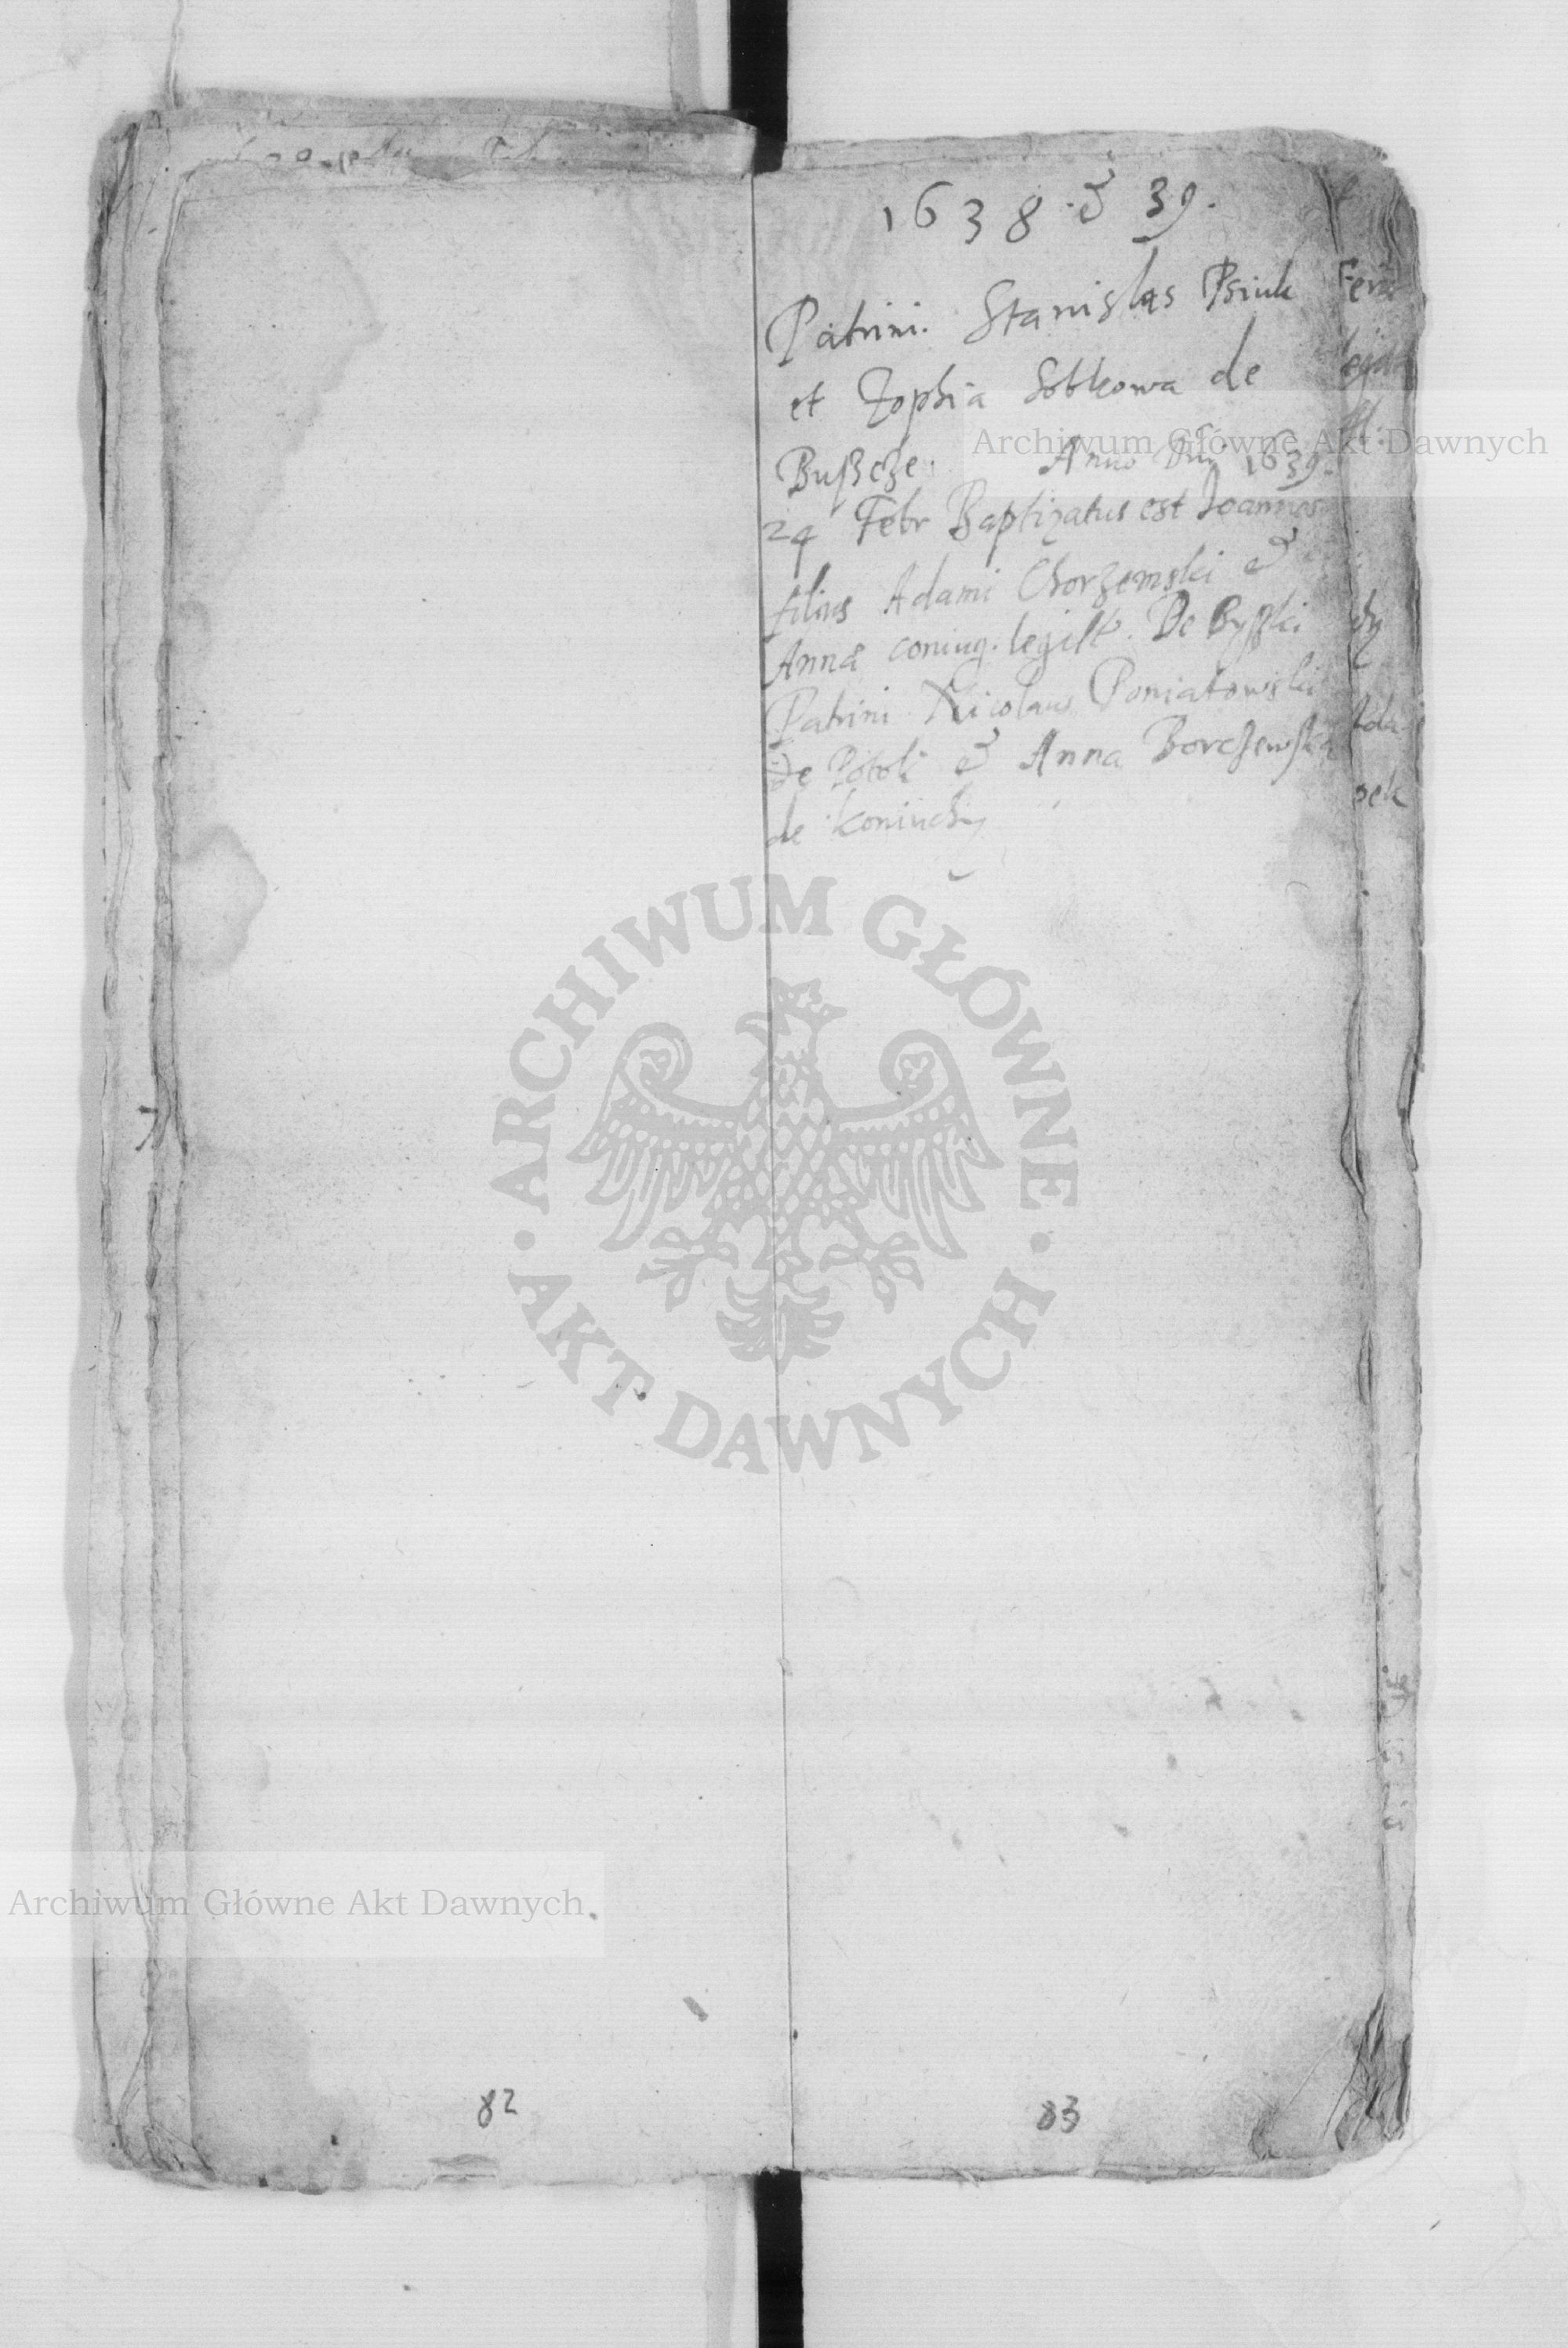 1638 & 39.
Patrini. Stanislas Psiuk
et Zophia Sobkowa de
Bußcze. Anno Dni 1639.
24 Febr Baptizatus est Joannes
filius Adami Chorzemski &
Anna coniug. legitt. De Byßki
Patrini Nicolaus Poniatowski
De Potoki & Anna Borczewska
de Koniuchy
82
83
Archiwum Główne Akt Dawnych
ARCHIWUM GŁÓWNE
AKT DAWNYCH
Archiwum Główne Akt Dawnych